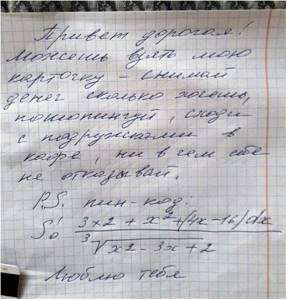 Привет дорогая!
Можешь взять мою
карточку - снимай
денег сколько хочешь,
пошопингуй, сходи
с подружками в
кафе, ни в чем себе
не отказывай.
P.S. пин-код:
3x2 + x2 - (4x - 16) dx
3√x2 - 3x + 2
Люблю тебя